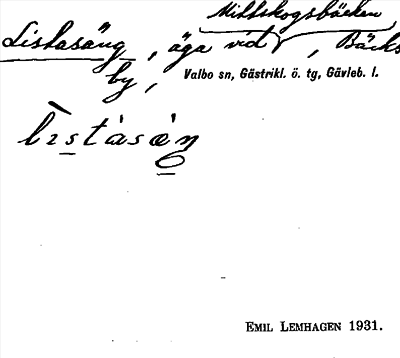 Mittskogsbäcken
Listasäng, äga vid , Bäcks
by, Valbo sn, Gästrikl. ö. tg, Gävleb. l.
EMIL LEMHAGEN 1931.